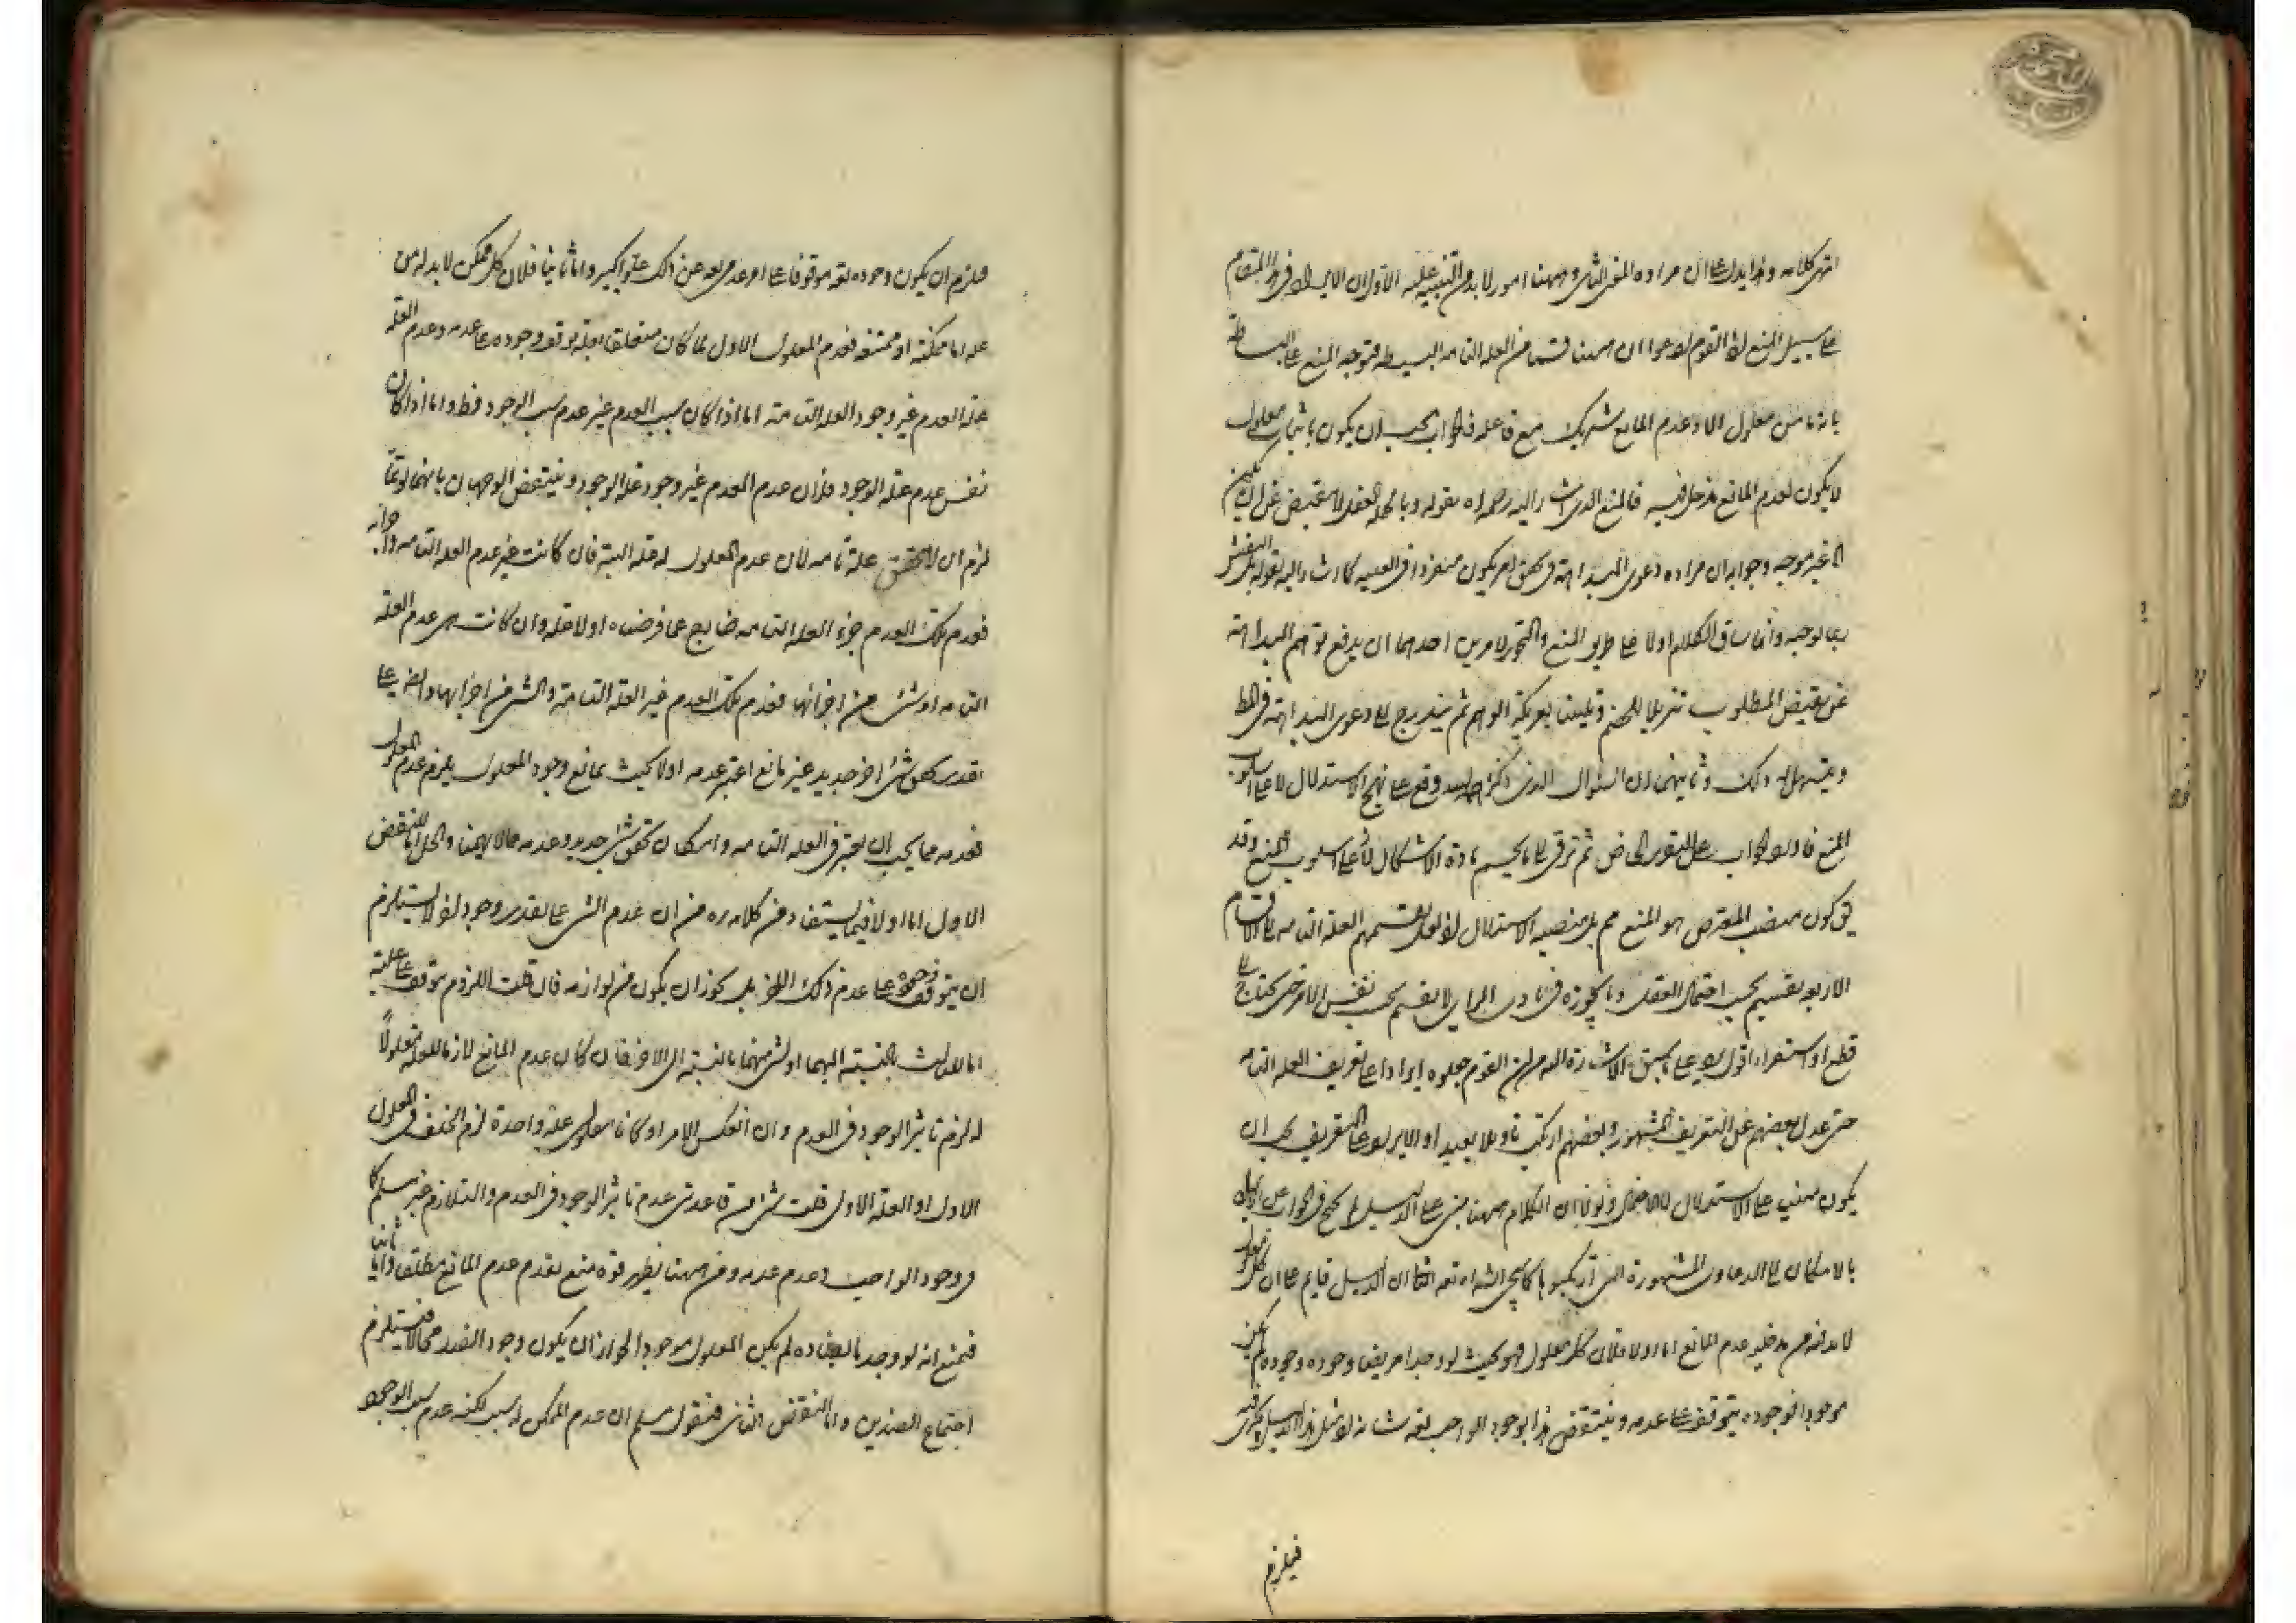 انتهى كلامه وهذا يدل على ان مراده المعنى الثاني وههنا امور لا بد من التنبيه عليه الاول ان الايراد في هذا المقام
على سبيل المنع لان القوم ادعوا ان ههنا قسما من العلة التامة البسيطة فتوجه المنع على البساطة
بانه ما من معلول الا وعدم المانع شريك مع فاعله فالجواب يجب ان يكون باثبات معلول
لا يكون لعدم المانع مدخل فيه فالمنع الذي اشار اليه رحمه الله بقوله وبالجملة العقل لا يقبض عن ان يكون
غير موجه وجوابه ان مراده دعوى البداهة في تحقق امر يكون منفردا في العلية كما اشار اليه بقوله بل
بما يوجبه وانما ساق الكلام اولا على طريق المنع والتجويز لامرين احدهما ان يدفع توهم البداهة
عن نقيض المطلوب تنزيلا للخصم وتليينا لعريكة الوهم ثم يتدرج الى دعوى البداهة في المط
ذلك وثانيهما ان السؤال الذي ذكر وقع على نهج الاستدلال لا على اسلوب
المنع فاورد الجواب على التقرير الخاص ثم ترقى الى ما يحسم مادة الاشكال لا على اسلوب المنع وقد
يق كون منصب المعترض هو المنع مم بل منصبه الاستدلال لان تقسيمهم العلة التامة الى الاقسام
الاربعة تقسيم بحسب احتمال العقل وما يجوزه في بادي الراي لا تقسيم بحسب نفس الامر حتى يحتاج الى
قطع او استقراء اقول على ما سبق الاشارة اليه من ان القوم جعلوه ايرادا على تعريف العلة التامة
حتى عدل بعضهم عن التعريف المشهور وبعضهم ارتكب تاويلا بعيدا والايراد على التعريف يجب ان
يكون مبنيا على الاستدلال لا الاحتمال وثانيا ان الكلام ههنا مبني على الدليل
بالامكان الى الدعاوى المشهورة التي ارتكبوها كما سيجئ انشاء الله تعه ان الدليل قايم على ان كل معلول
لا بد له من مدخلية عدم المانع اما اولا فلان كل معلول فهو بحيث لو وجد امر ينافي وجوده وجوده لم يكن
موجودا فوجوده يتوقف على عدمه وينتقض هذا بوجود الواجب تعه شانه لان مثل هذا الدليل يجري فيه
فيلزم
فيلزم ان يكون وجوده تعه موقوفا على امر عدمي تعه عن ذلك علوا كبيرا واما ثانيا فلان كل ممكن لا بد له من
علة اما ممكنة او ممتنعة فعدم المعلول الاول لما كان متعلقا بعلة توقف وجوده على عدمه وعدم العلة
علة العدم غير وجود العلة التامة اما اذا كان سبب العدم غير عدم سبب الوجود فظ واما اذا كان
نفس عدم علة الوجود فلان عدم العدم غير وجود علة الوجود وينتقض الوجهان بانهما لو تما
لزم ان لا يتحقق علة تامة لان عدم المعلول له علة البتة فان كانت غير عدم العلة التامة واجزائه
فعدم تلك العدم جزء العلة التامة خارج عما فرضناه اولا علة وان كانت هي عدم العلة
التامة او شئ من اجزائها فعدم تلك العدم غير العلة التامة والشئ من اجزائها وايض على
تقدير تحقق شئ اخر جديد غير مانع اعتبر عدمه اولا بحيث يمانع وجود المعلول يلزم عدم المعلول
فعدمه مما يجب ان يعتبر في العلة التامة وامكان تحقق شئ جديد وعدمه مما لا يهمنا والحل اما للنقض
الاول اما اولا فبما يستفاد من كلامه ره من ان عدم الشئ على تقدير وجود امر لا يستلزم
ان يتوقف وجوده على عدم ذلك الامر بل يجوز ان يكون من لوازمه فان قلت اللزوم يتوقف على علية
اما لثالث بالنسبة اليهما او لشئ منهما بالنسبة الى الاخر فان كان عدم المانع لازما للعلة معلولا
له لزم تاثير الوجود في العدم وان انعكس الامر او كانا معلولي علة واحدة لزم الخلف في المعلول
الاول او العلة الاولى قلت شئ من قاعدتي عدم تاثير الوجود في العدم والتلازم غير مسلم كما
في وجود الواجب وعدم عدمه ومن ههنا يظهر قوة منع تقدم عدم المانع مطلقا واما ثانيا
فبمنع انه لو وجد ما يضاده لم يكن المعلول موجودا لجواز ان يكون وجود الضد محالا فيستلزم
اجتماع الضدين واما النقض الثاني فنقول مسلم ان عدم الممكن له سبب لكنه عدم سبب الوجود